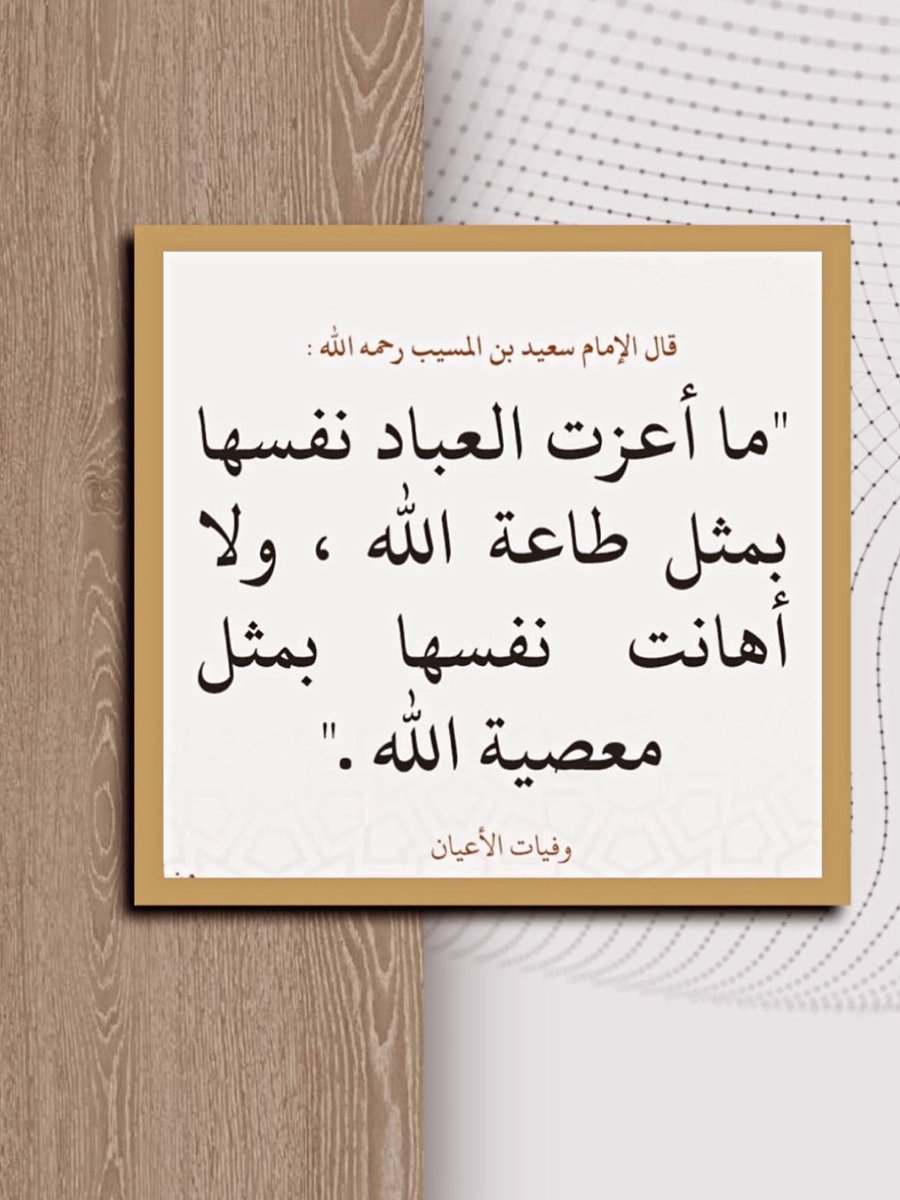 قال الإمام سعيد بن المسيب رحمه الله :
"ما أعزت العباد نفسها
بمثل طاعة الله ، ولا
أهانت نفسها بمثل
معصية الله ."
وفيات الأعيان